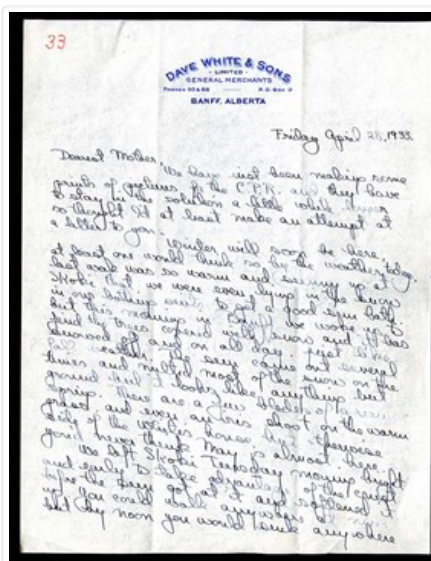 33
DAVE WHITE & SONS
LIMITED
GENERAL MERCHANTS
PHONES 50 & 88 P.O. BOX
BANFF, ALBERTA
Friday April 28, 1933.
Dearest Mother,
We have just been making some
prints of pictures for the C.P.R. and they have
to stay in the solution a little while longer
so thought I'd at least make an attempt at
a letter to you.
Winter will soon be here,
at least one would think so by the weather today.
Last week was so warm and sunny up at
Skoki that we were even lying in the snow
in our bathing suits to get a good sun bath
but this morning in Banff we woke up to
find the trees covered with snow and it has
snowed off and on all day. Just like
fall weather. The sun came out several
times and melted most of the snow on the
ground but it looks like anything but
spring. There are a few blades of green
grass and even shoot on the warm
side of the house but
good never think May is almost here.
We left Skoki Tuesday morning bright
and early to take advantage of the crust
before the sun got at it and softened it
up. You could walk anywhere at
but by noon you would sink anywhere